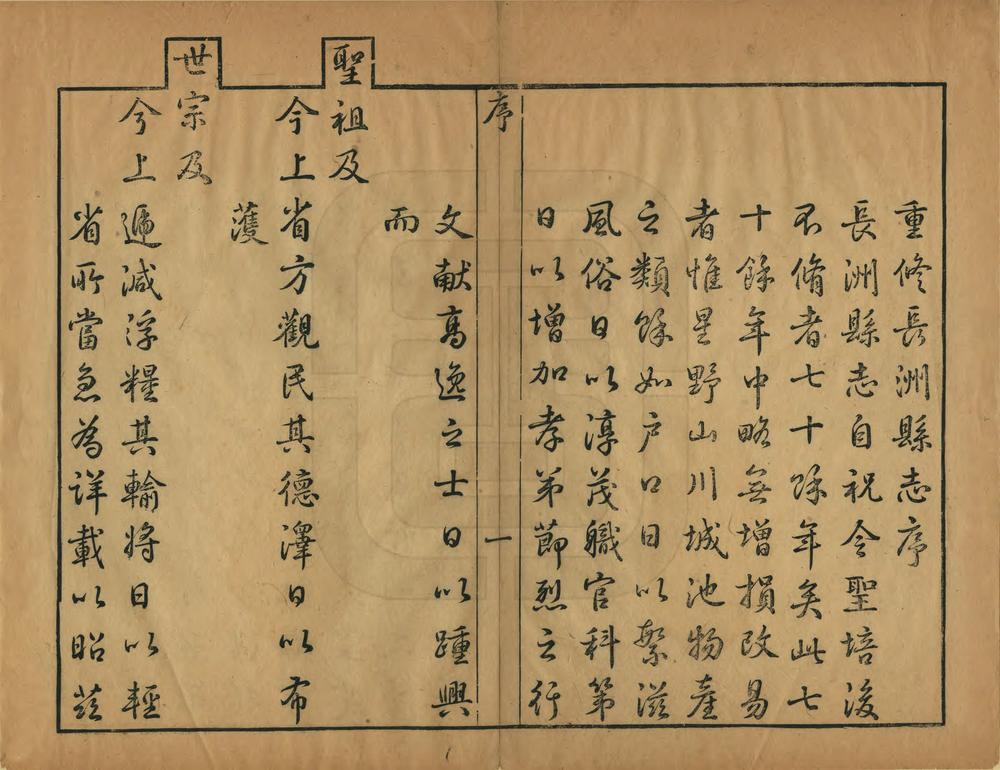 重修長洲縣志序
長洲縣志自祝令聖培後
不脩者七十餘年矣此七
十餘年中略無增損改易
者惟星野山川城池物產
之類餘如戶口日以繁滋
風俗日以淳茂職官科第
日以增加孝弟節烈之行
序
一
文獻高逸之士日以踵興
而
聖祖及
今上省方觀民其德澤日以布
護
世宗及
今上遞減浮糧其輸將日以輕
省所當急為詳載以昭茲